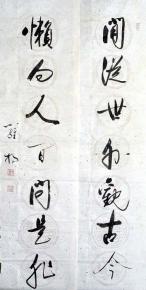 閒從世外觀古今
懶向人間問是非
羅楊